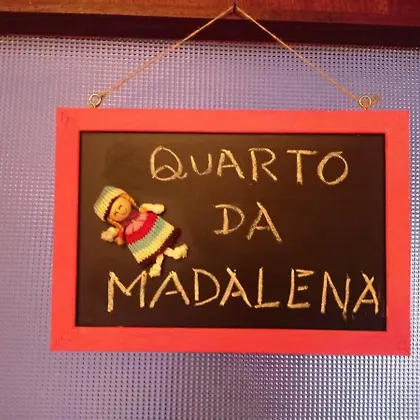 QUARTO
DA
MADALENA